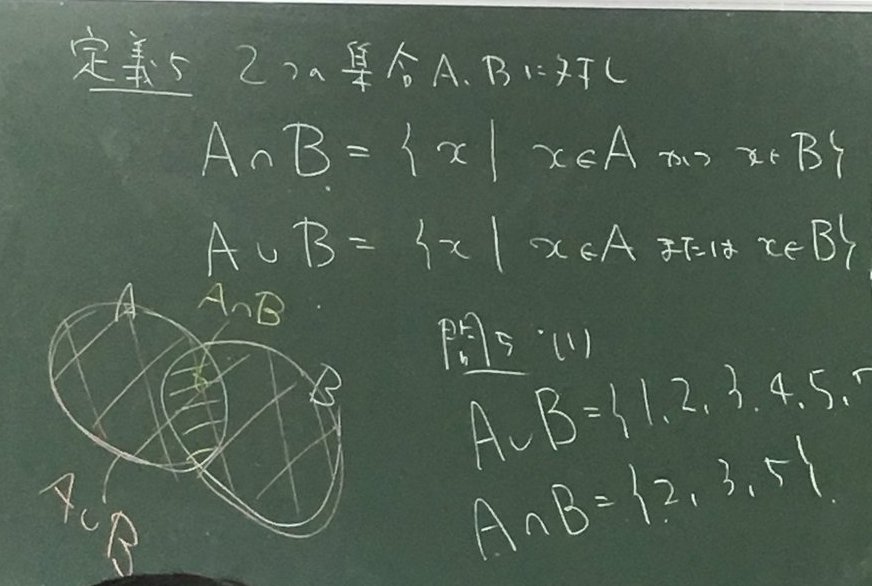 定義5 2つの集合A、Bに対し
A∩B = { x | x∈A かつ x∈B}
A∪B = {x | x∈A または x∈B}
A
A∩B
B
A∪B
問5 (1)
A∪B={1, 2, 3, 4, 5,
A∩B={2, 3, 5}